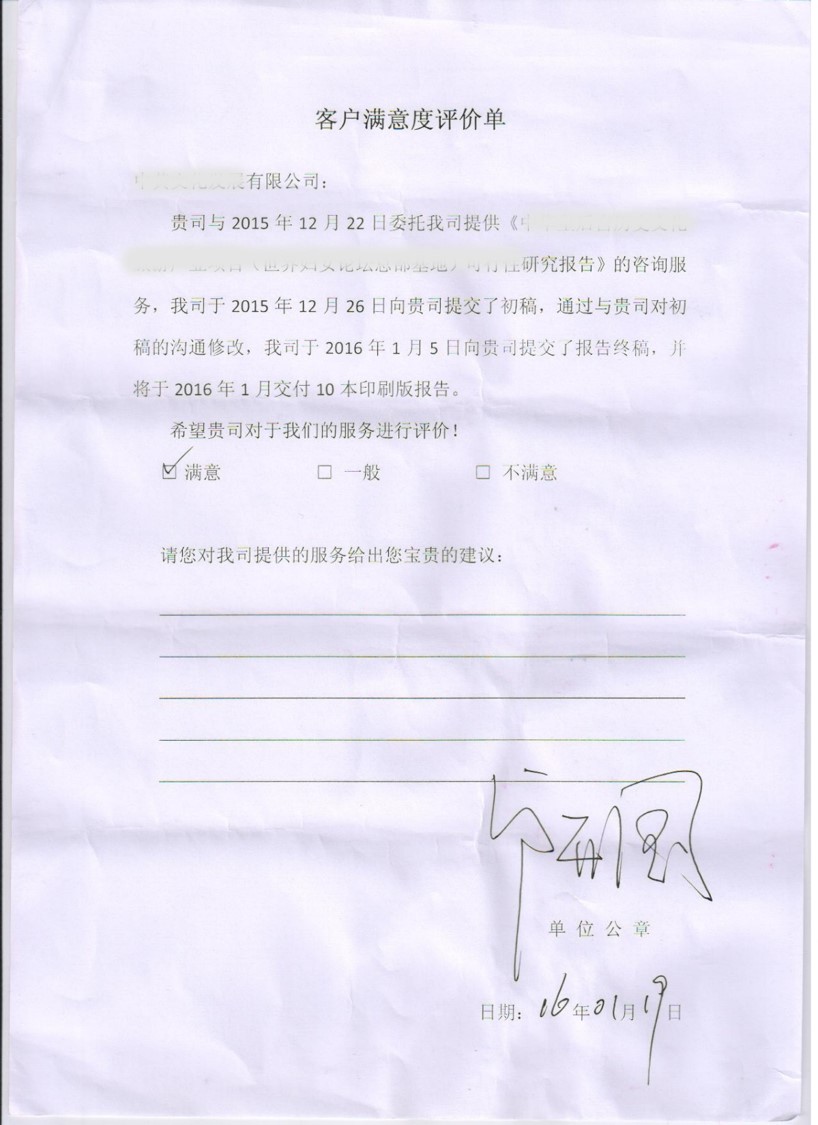 客户满意度评价单
有限公司：
贵司与 2015 年 12 月 22 日委托我司提供《
研究报告》的咨询服
务，我司于 2015 年 12 月 26 日向贵司提交了初稿，通过与贵司对初
稿的沟通修改，我司于 2016 年 1 月 5 日向贵司提交了报告终稿，并
将于 2016 年 1 月交付 10 本印刷版报告。
希望贵司对于我们的服务进行评价！
☑ 满意 □ 一般 □ 不满意
请您对我司提供的服务给出您宝贵的建议：
单 位 公 章
日期：16年01月19日